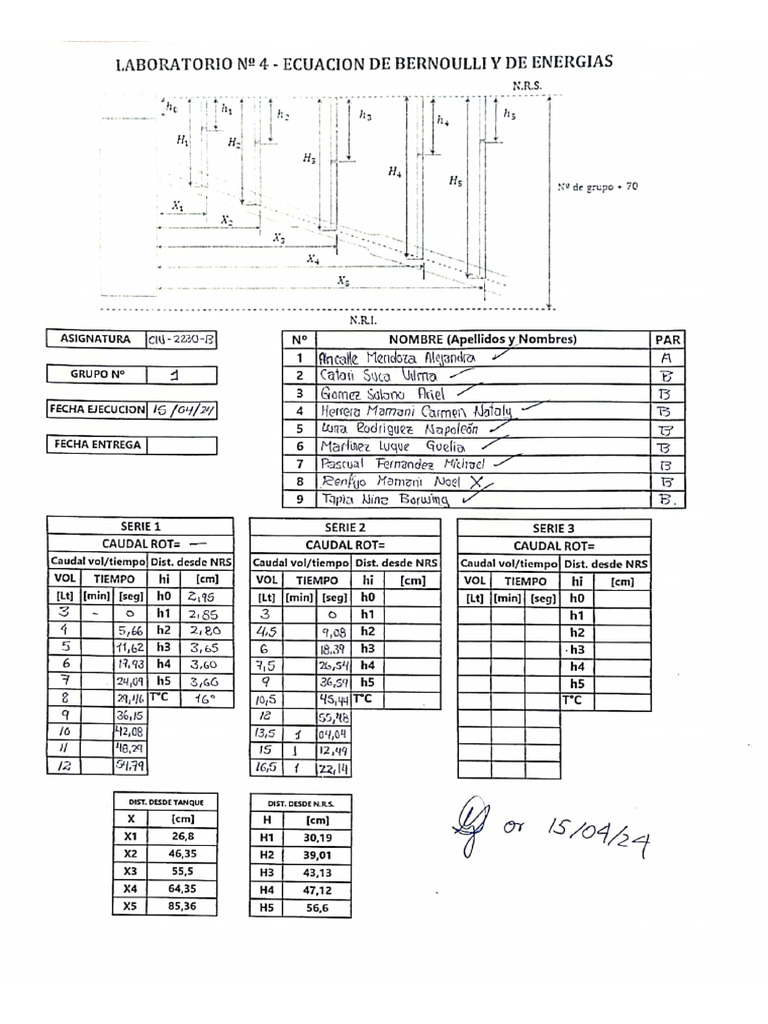 LABORATORIO Nº 4 - ECUACION DE BERNOULLI Y DE ENERGIAS
N.R.S.
h0 h1 h2 h3 h4 h5
H1 H2 H3 H4 H5
Nº de grupo + 70
X1
X2
X3
X4
X5
N.R.I.
ASIGNATURA CIV-2230-B
GRUPO Nº 1
FECHA EJECUCION 15/04/24
FECHA ENTREGA
Nº NOMBRE (Apellidos y Nombres) PAR
1 Ancalle Mendoza Alejandra A
2 Catari Suca Vilma B
3 Gomez Solano Ariel B
4 Herrera Mamani Carmen Nataly B
5 Luna Rodriguez Napoleón B
6 Martinez Luque Guelia B
7 Pascual Fernandez Michael B
8 Mamani Noel X B
9 Tapia Nina B.
SERIE 1
CAUDAL ROT= —
Caudal vol/tiempo Dist. desde NRS
VOL TIEMPO hi [cm]
[Lt] [min] [seg] h0 2,95
3 - 0 h1 2,85
4 5,66 h2 2,80
5 11,62 h3 3,65
6 17,93 h4 3,60
7 24,09 h5 3,66
8 29,46 T°C 16°
9 36,15
10 42,08
11 48,29
12 54,79
SERIE 2
CAUDAL ROT=
Caudal vol/tiempo Dist. desde NRS
VOL TIEMPO hi [cm]
[Lt] [min] [seg] h0
3 0 h1
4,5 9,08 h2
6 18.39 h3
7,5 26,54 h4
9 36,59 h5
10,5 45,44 T°C
12 55,48
13,5 1 04,04
15 1 12,49
16,5 1 22,14
SERIE 3
CAUDAL ROT=
Caudal vol/tiempo Dist. desde NRS
VOL TIEMPO hi [cm]
[Lt] [min] [seg] h0
h1
h2
h3
h4
h5
T°C
DIST. DESDE TANQUE
X [cm]
X1 26,8
X2 46,35
X3 55,5
X4 64,35
X5 85,36
DIST. DESDE N.R.S.
H [cm]
H1 30,19
H2 39,01
H3 43,13
H4 47,12
H5 56,6
15/04/24